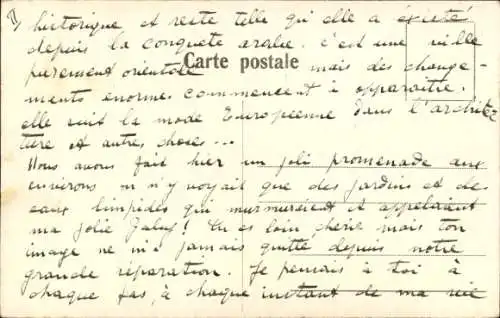 II
historique et reste telle qu'elle a existé
depuis la conquete arabe. c'est une ville
purement orientale mais des change-
Carte postale
ments enormes commencent à apparaitre.
elle suit la mode Européenne dans l'architec
ture et autres choses...
Nous avons fait hier un joli promenade aux
environs on n'y voyait que des jardins et des
eaux limpides qui murmuraient et appelaient
ma jolie ! Tu es loin cherie mais ton
image ne m'a jamais quitté depuis notre
grande séparation. Je pensais à toi à
chaque pas, à chaque instant de ma vie